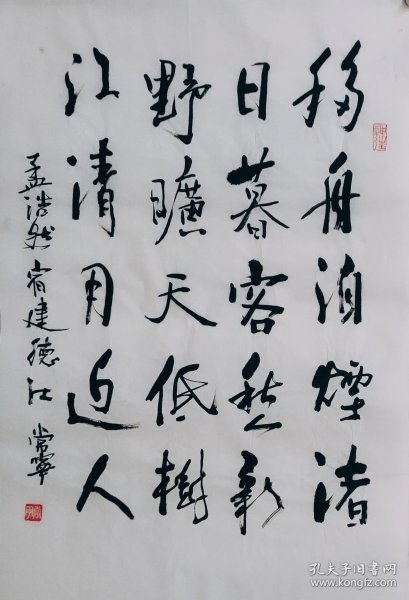 移舟泊煙渚
日暮客愁新
野曠天低樹
江清月近人
孟浩然宿建德江 常寧
孔夫子旧书网
www.kongfz.com